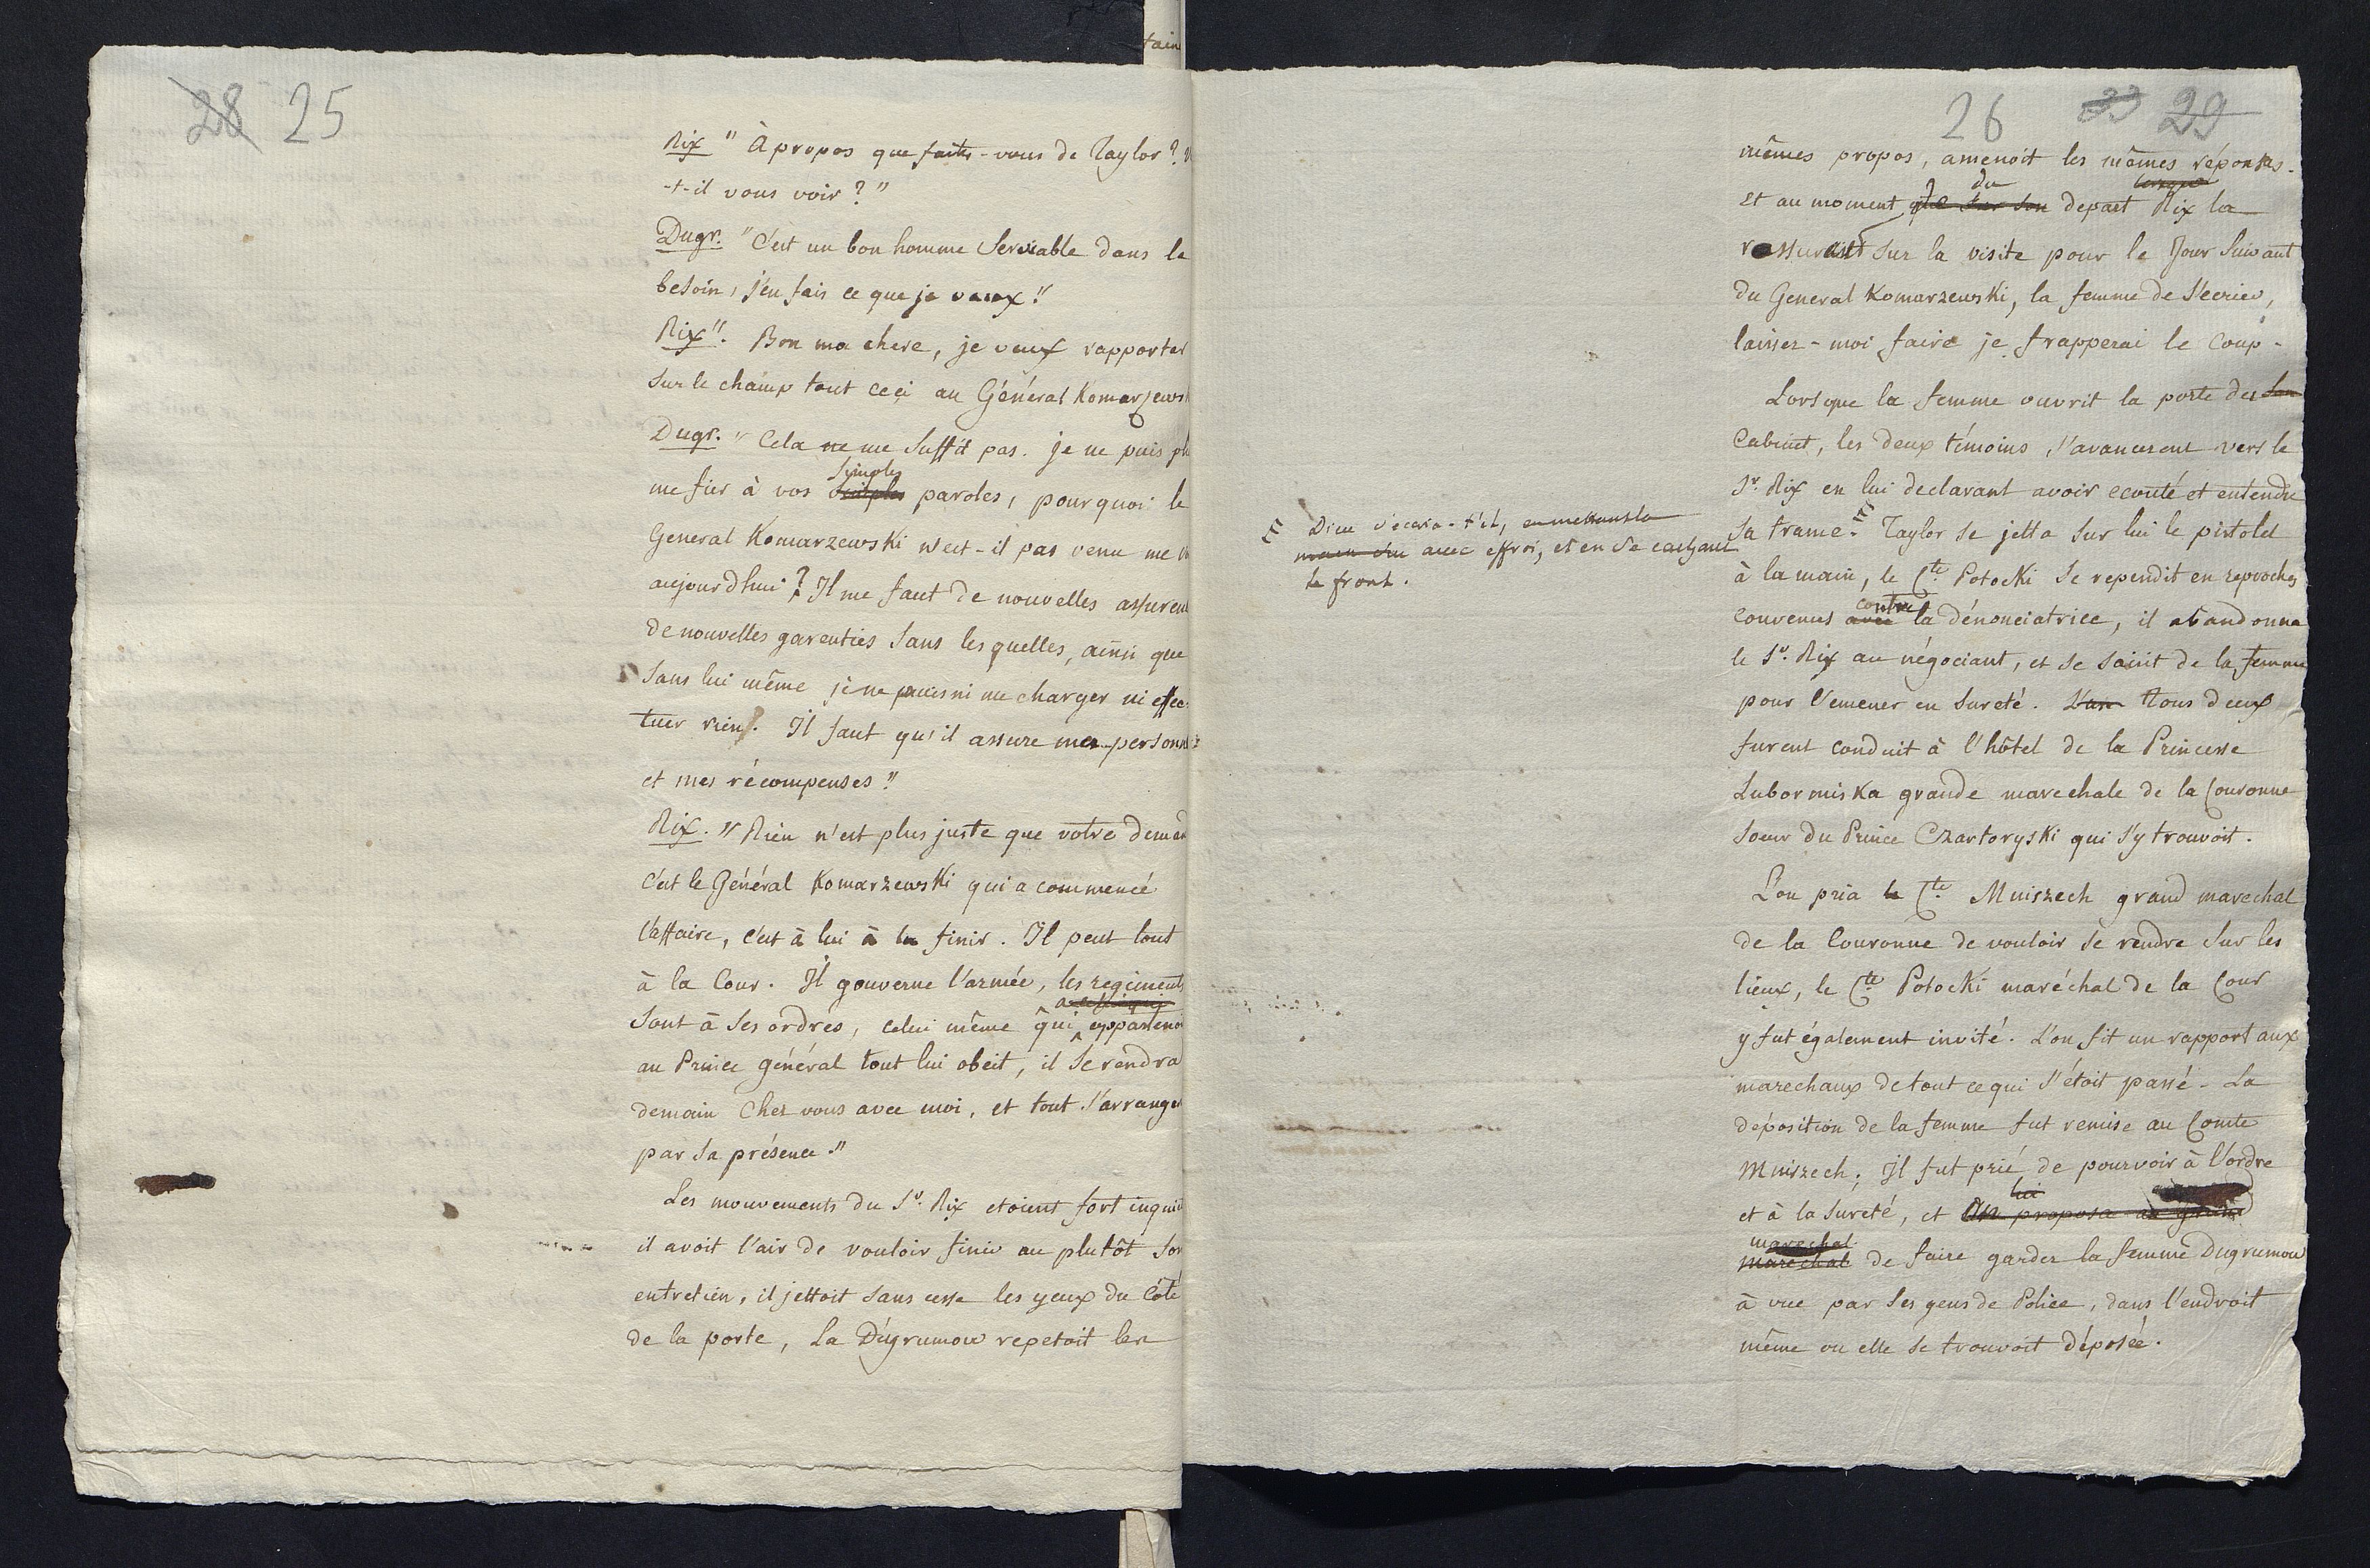 28 25
Rix " À propos que faites-vous de Taylor ?
-t-il vous voir ? "
Dugr. " C'est un bon homme Serviable dans le
besoin, j'en fais ce que je veux "
Rix ". Bon ma chere, je veux rapporter
sur le champ tout ceci au Général Komarzews
Dugr. " Cela ne me suffit pas. je ne puis pl
simples
me fier à vos simples paroles, pourquoi le
General Komarzewski n'est-il pas venu me v
aujourdhui ? Il me faut de nouvelles assuren
de nouvelles garenties sans lesquelles, ainsi que
sans lui même je ne puis ni me charger ni effec-
tuer rien. Il faut qu'il assure ma personne
et mes récompenses "
Rix. " Rien n'est plus juste que votre deman
c'est le Général Komarzewski qui a commencé
l'affaire, c'est à lui à la finir. Il peut tout
à la Cour. Il gouverne l'armée, les regiments
sont à ses ordres, celui même qui appartenoi
au Prince général tout lui obeit, il se rendra
demain chez vous avec moi, et tout s'arranger
par sa présence. "
Les mouvements du Sr. Rix etoient fort inquie
il avoit l'air de vouloir finir au plutôt son
entretien, il jettoit sans cesse les yeux du côté
de la porte, La Dugrumow repetoit les
26 33 29
mêmes propos, amenoit les mêmes réponses.
du lorsque
et au moment que sur son depart Rix la
rassurait sur la visite pour le Jour suivant
du General Komarzewski, la femme de s'ecrier,
laissez-moi faire je frapperai le coup.
Lorsque la femme ouvrit la porte du son
Cabinet, les deux témoins s'avancerent vers le
Sr. Rix en lui declarant avoir ecouté et entendu
Sa trame. Taylor se jetta sur lui le pistolet
Dieu s'ecria-t'il, en mettant la
main sur avec effroi, et en se cachant
le front.
à la main, le Cte Potocki se rependit en reproches
contre
convenus avec la dénonciatrice, il abandonna
le Sr. Rix au négociant, et se saisit de la femme
pour l'emener en sureté. L'un Tous deux
furent conduit à l'hôtel de la Princesse
Lubormiska grande marechale de la Couronne
soeur du Prince Czartoryski qui s'y trouvoit.
L'on pria le Cte Mniszech grand marechal
de la Couronne de vouloir se rendre sur les
lieux, le Cte Potocki maréchal de la Cour
y fut également invité. L'on fit un rapport aux
marechaux de tout ce qui s'étoit passé. La
déposition de la femme fut remise au Comte
Mniszech; Il fut prié de pourvoir à l'ordre
lui
et à la sureté, et On proposa au grand
marechal
marechal de faire garder la femme Dugrumow
à vue par ses gens de Police, dans l'endroit
même ou elle se trouvoit déposée.